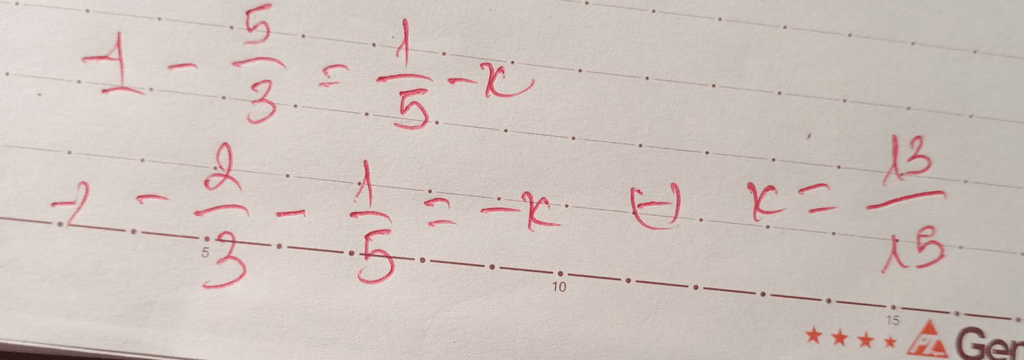 -1 - 5/3 = 1/5 - x
-1 - 2/3 - 1/5 = -x (-). x = 13/15
5 10 15
Ger